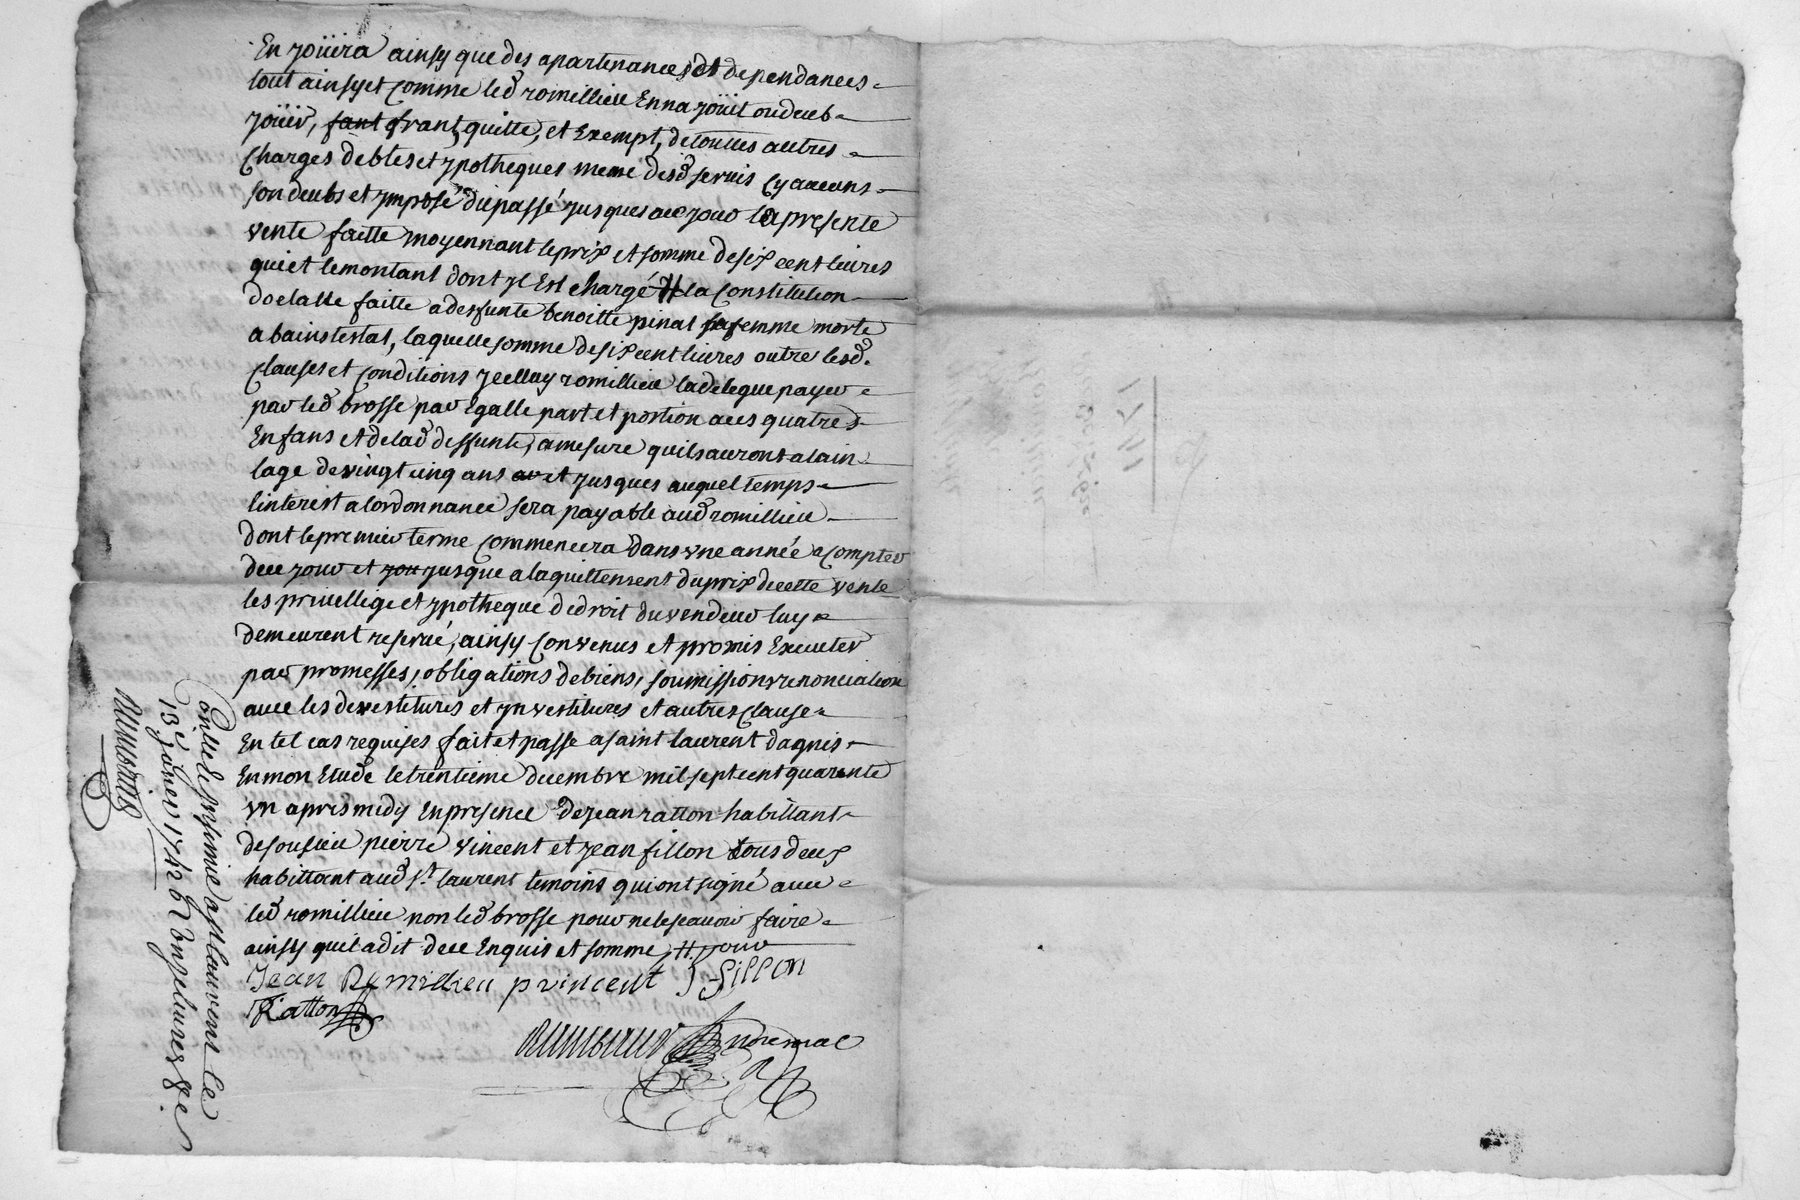 En joüira ainsy que des apartenances et dependances
tout ainsy et comme led romillieu En na joüit ou deub
joüir, fant frant, quitte, et Exempt, de touttes autres
Charges debtes et ypotheques meme desd servis cy
son deubs et ymposé du passé jusques au jour la presente
vente faitte moyennant le prix et somme de six cent livres
qui et le montant dont yl Est chargé la Constitution
doctalle faitte a deffunte benoitte pinat sa femme morte
abaintestat, laquelle somme de six cent livres outre lesd.
Clauses et Conditions ycelluy romillieu la delegue payer
par led brosse par Egalle part et portion a ces quatres
Enfans et de lad deffunte, a mesure quils auront alain
lage de vingt cinq ans et jusques auquel temps
linterist a lordonnance sera payable aud romillieu
dont le premier terme Commencera dans vne année a compter
de ce jour et jou jusque a laquittement du prix de cette vente
les privellige et ypotheque de droit du vendeur luy
demeurent reservé, ainsy Convenus et promis Executer
par promesses, obligations de biens, soumissions renonciations
avec les devestitures et ynvestitures et autres Clause
En tel cas requises fait et passe a saint laurent dagnis
En mon Etude le trentieme decembre mil sept cent quarente
vn apres midy En presence de jean ratton habittant
de soucieu pierre vincent et jean fillon tous deux
habittant aud st. laurent temoins qui ont signé avec
led romillieu non led brosse pour ne le scavoir faire
ainsy quil a dit de ce Enquis et somme jour
Jean Romillieu p vincent J fillon
Ratton
Conllé & a st laurent le
13e Janvier 1742